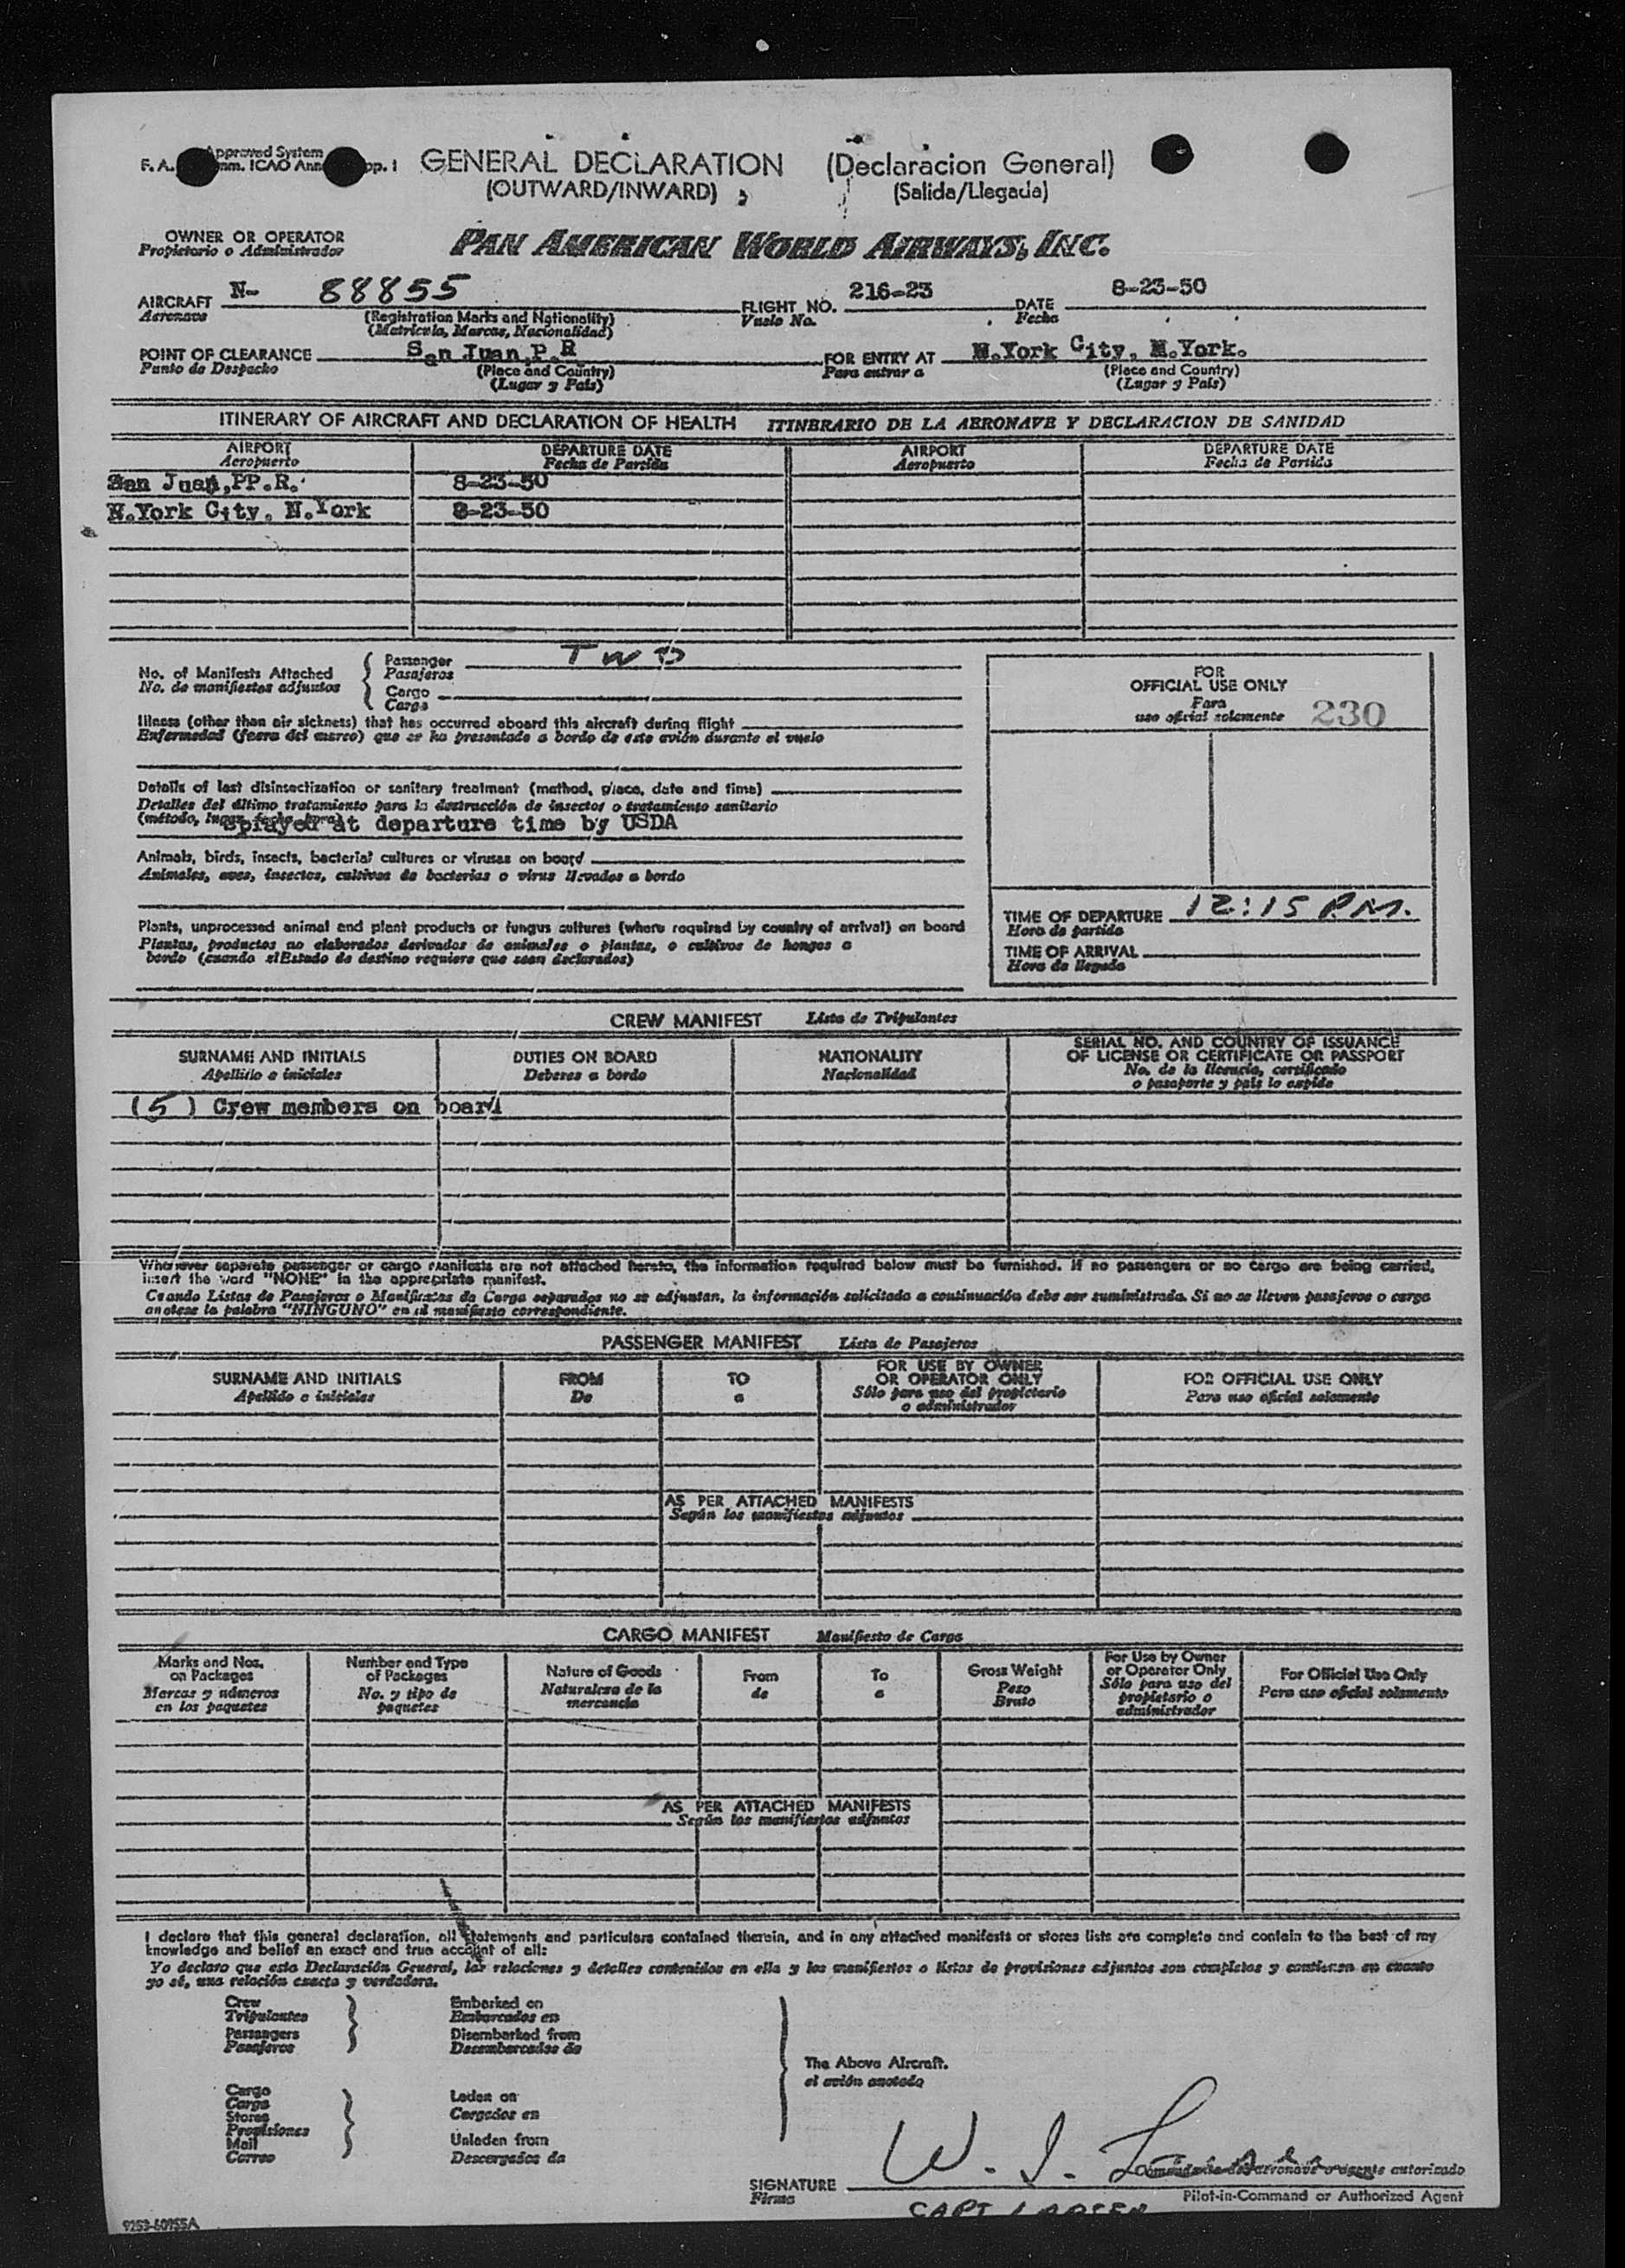 Approved System
F. A. mm. ICAO Ann pp. 1
GENERAL DECLARATION (Declaracion General)
(OUTWARD/INWARD) (Salida/Llegada)
OWNER OR OPERATOR
Propietario o Administrador
PAN AMERICAN WORLD AIRWAYS, INC.
AIRCRAFT N- 88855 FLIGHT NO. 216-23 DATE 8-23-50
Aeronave (Registration Marks and Nationality) Vuelo No. Fecha
(Matricula, Marcas, Nacionalidad)
POINT OF CLEARANCE San Juan,P.R FOR ENTRY AT N.York City, N.York.
Punto de Despacho (Place and Country) Para entrar a (Place and Country)
(Lugar y País) (Lugar y País)
ITINERARY OF AIRCRAFT AND DECLARATION OF HEALTH ITINERARIO DE LA AERONAVE Y DECLARACION DE SANIDAD
AIRPORT DEPARTURE DATE AIRPORT DEPARTURE DATE
Aeropuerto Fecha de Partida Aeropuerto Fecha de Partida
San Juan,PP.R. 8-23-50
N.York City, N.York 8-23-50
No. of Manifests Attached
No. de manifiestos adjuntos
Passenger TWO
Pasajeros
Cargo
Carga
Illness (other than air sickness) that has occurred aboard this aircraft during flight
Enfermedad (fuera del mareo) que se ha presentado a bordo de este avión durante el vuelo
Details of last disinsectization or sanitary treatment (method, place, date and time)
Detalles del último tratamiento para la destrucción de insectos o tratamiento sanitario
(método, lugar, fecha, hora)
Sprayed at departure time by USDA
Animals, birds, insects, bacterial cultures or viruses on board
Animales, aves, insectos, cultivos de bacterias o virus llevados a bordo
Plants, unprocessed animal and plant products or fungus cultures (where required by country of arrival) on board
Plantas, productos no elaborados derivados de animales o plantas, o cultivos de hongos a
bordo (cuando el Estado de destino requiere que sean declarados)
FOR
OFFICIAL USE ONLY
Para
uso oficial solamente 230
TIME OF DEPARTURE 12:15 P.M.
Hora de partida
TIME OF ARRIVAL
Hora de llegada
CREW MANIFEST Lista de Tripulantes
SURNAME AND INITIALS DUTIES ON BOARD NATIONALITY SERIAL NO. AND COUNTRY OF ISSUANCE
Apellido e iniciales Deberes a bordo Nacionalidad OF LICENSE OR CERTIFICATE OR PASSPORT
No. de la licencia, certificado
o pasaporte y país lo expide
(5) Crew members on board
Whenever separate passenger or cargo manifests are not attached hereto, the information required below must be furnished. If no passengers or no cargo are being carried,
insert the word "NONE" in the appropriate manifest.
Cuando Listas de Pasajeros o Manifiestos de Carga separados no se adjuntan, la información solicitada a continuación debe ser suministrada. Si no se lleven pasajeros o carga
anotese la palabra "NINGUNO" en el manifiesto correspondiente.
PASSENGER MANIFEST Lista de Pasajeros
SURNAME AND INITIALS FROM TO FOR USE BY OWNER FOR OFFICIAL USE ONLY
Apellido e iniciales De a OR OPERATOR ONLY Para uso oficial solamente
Sólo para uso del propietario
o administrador
AS PER ATTACHED MANIFESTS
Según los manifiestos adjuntos
CARGO MANIFEST Manifiesto de Carga
Marks and Nos.
on Packages
Marcas y números
en los paquetes
Number and Type
of Packages
No. y tipo de
paquetes
Nature of Goods
Naturaleza de la
mercancía
From
de
To
a
Gross Weight
Peso
Bruto
For Use by Owner
or Operator Only
Sólo para uso del
propietario o
administrador
For Official Use Only
Para uso oficial solamente
AS PER ATTACHED MANIFESTS
Según los manifiestos adjuntos
I declare that this general declaration, all statements and particulars contained therein, and in any attached manifests or stores lists are complete and contain to the best of my
knowledge and belief an exact and true account of all:
Yo declaro que esta Declaración General, las relaciones y detalles contenidos en ella y los manifiestos o listas de provisiones adjuntos son completos y contienen en cuanto
yo sé, una relación exacta y verdadera.
Crew
Tripulantes
Passengers
Pasajeros
Embarked on
Embarcados en
Disembarked from
Desembarcados de
Cargo
Carga
Stores
Provisiones
Mail
Correo
Laden on
Cargados en
Unladen from
Descargados de
The Above Aircraft.
el avión anotado
W. J. Larsen
Comandante de aeronave o agente autorizado
SIGNATURE
Firma
Pilot-in-Command or Authorized Agent
CAPT LARSEN
9253-60955A